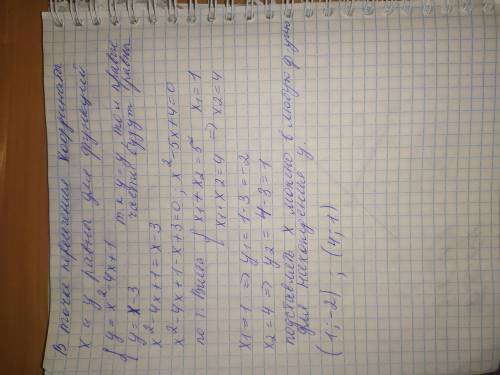 В точке пересечения координаты
x и y равны для функций
{ y = x² - 4x + 1   т.к y = y, то и правые
{ y = x - 3   части будут равны
x² - 4x + 1 = x - 3
x² - 4x + 1 - x + 3 = 0; x² - 5x + 4 = 0
по т. Виета { x1 + x2 = 5   x1 = 1
x1 · x2 = 4 => x2 = 4
x1 = 1 => y1 = 1 - 3 = -2
x2 = 4 => y2 = 4 - 3 = 1
подставлять x можно в любую ф-цию
для нахождения y.
(1; -2) ; (4; 1)